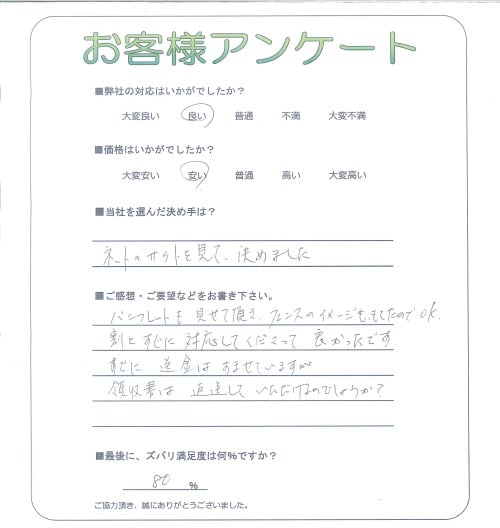 お客様アンケート
■弊社の対応はいかがでしたか？
大変良い 良い 普通 不満 大変不満
■価格はいかがでしたか？
大変安い 安い 普通 高い 大変高い
■当社を選んだ決め手は？
ネットのサイトを見て、決めました
■ご感想・ご要望などをお書き下さい。
パンフレットも見せて頂き、フェンスのイメージももてたのでOK.
割とすぐに対応してくださって良かったです
すでに送金はすませていますが
領収書は返送していただけるのでしょうか？
■最後に、ズバリ満足度は何％ですか？
80 ％
ご協力頂き、誠にありがとうございました。